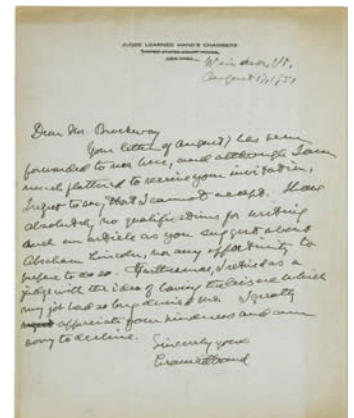 JUDGE LEARNED HAND'S CHAMBERS
UNITED STATES COURT HOUSE
NEW YORK
Windsor, Vt.
August 17, 1951
Dear Mr. Brockway
Your letter of August 7 has been
forwarded to me here, and although I am
much flattered to receive your invitation,
I regret to say that I cannot accept. I have
absolutely no qualifications for writing
such an article as you suggest about
Abraham Lincoln, nor any opportunity to
prepare to do so. Furthermore, I retired as a
judge with the idea of having the leisure which
my job had so long denied me. I greatly
appreciate your kindness and am
sorry to decline.
Sincerely yours
Learned Hand